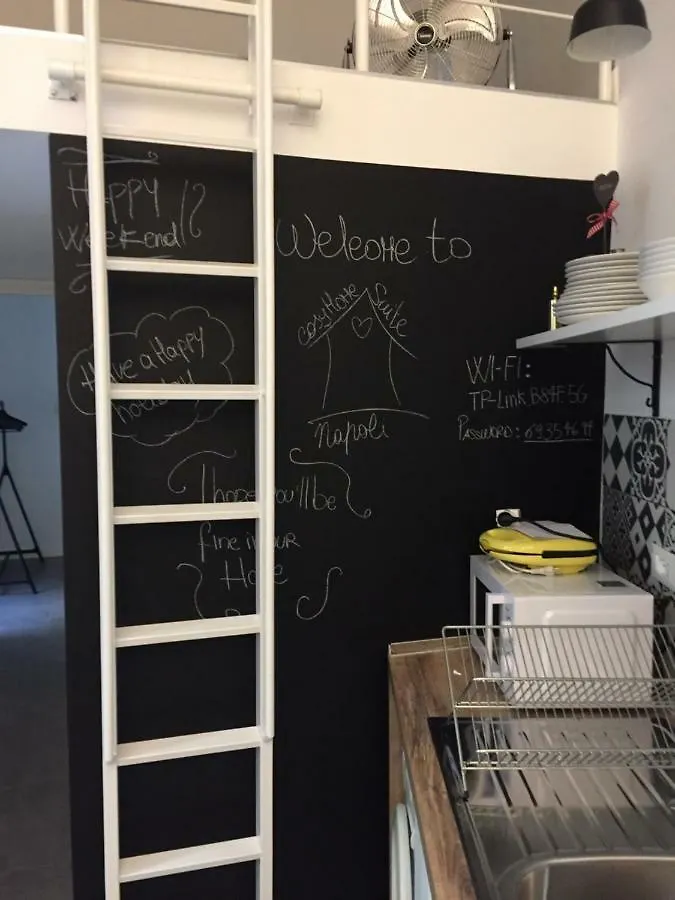 Happy
Weekend!!
Welcome to
cosyHome Suite
Have a Happy
holiday
Napoli
WI-FI:
TP-Link_B84F_5G
Password: 69354699
I hope you'll be
fine in our
Home